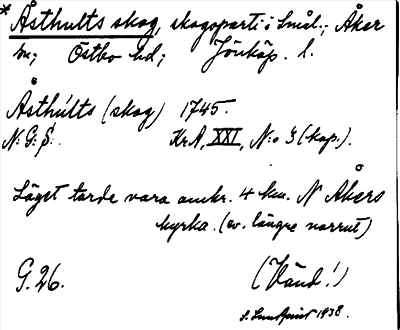 * Åsthults skog, skogsparti i Smål.; Åker
sn; Östbo hd; Jönköp. l.
Åsthults (skog) 1745.
N:G:S: Kr.A, XXI, N:o 3 (kop.).
Läget torde vara omkr. 4 km. N Åkers
kyrka. (ev. längre norrut)
G. 26. (Vänd!)
S. Lundqvist 1938.